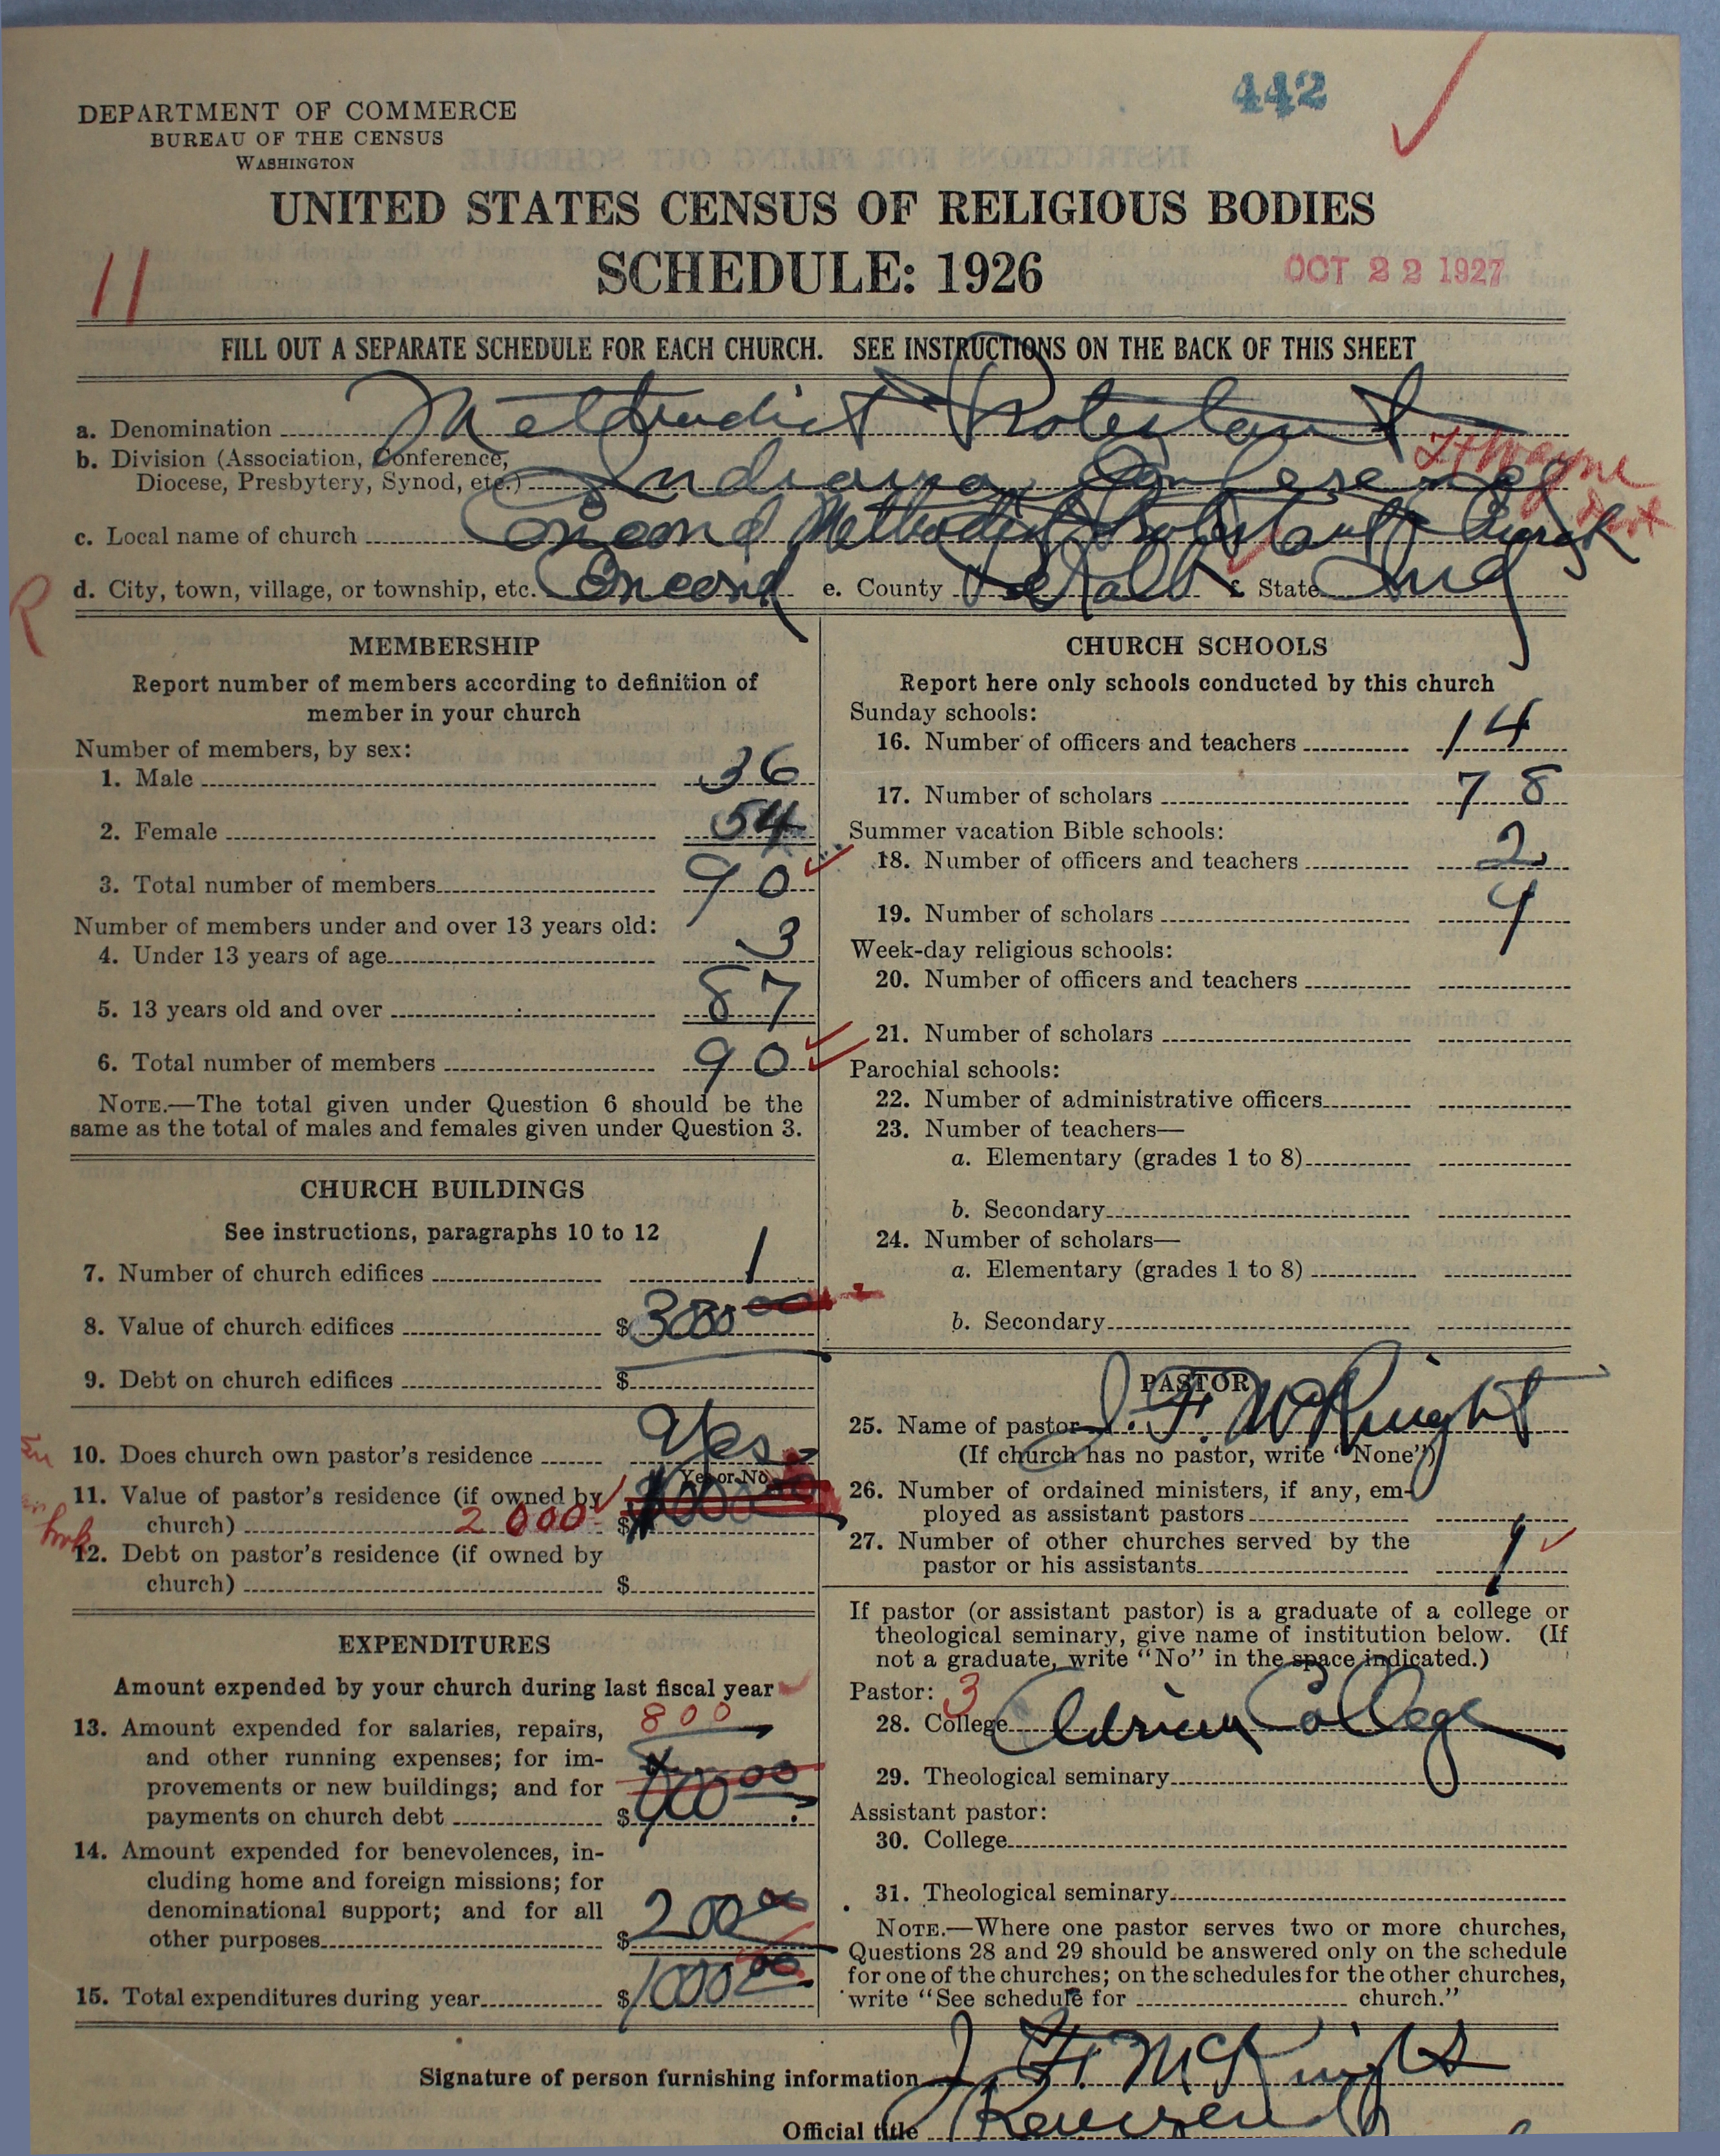 442
DEPARTMENT OF COMMERCE
BUREAU OF THE CENSUS
WASHINGTON
UNITED STATES CENSUS OF RELIGIOUS BODIES
SCHEDULE: 1926
OCT 22 1927
11
FILL OUT A SEPARATE SCHEDULE FOR EACH CHURCH. SEE INSTRUCTIONS ON THE BACK OF THIS SHEET
a. Denomination Methodist Protestant
b. Division (Association, Conference,
Diocese, Presbytery, Synod, etc.) Indiana Conference
Ft Wayne
c. Local name of church Concord Methodist Protestant Church
R
d. City, town, village, or township, etc. Concord e. County DeKalb f. State Ind
MEMBERSHIP
Report number of members according to definition of
member in your church
Number of members, by sex:
1. Male 36
2. Female 54
3. Total number of members 90
Number of members under and over 13 years old:
4. Under 13 years of age 3
5. 13 years old and over 87
6. Total number of members 90
NOTE.—The total given under Question 6 should be the
same as the total of males and females given under Question 3.
CHURCH BUILDINGS
See instructions, paragraphs 10 to 12
7. Number of church edifices 1
8. Value of church edifices $3000 00
9. Debt on church edifices $
10. Does church own pastor's residence Yes
Yes or No
11. Value of pastor's residence (if owned by
church) 2000 $
12. Debt on pastor's residence (if owned by
church) $
EXPENDITURES
Amount expended by your church during last fiscal year
13. Amount expended for salaries, repairs, 800
and other running expenses; for im-
provements or new buildings; and for
payments on church debt $
14. Amount expended for benevolences, in-
cluding home and foreign missions; for
denominational support; and for all
other purposes $200 00
15. Total expenditures during year $1000 00
CHURCH SCHOOLS
Report here only schools conducted by this church
Sunday schools:
16. Number of officers and teachers 14
17. Number of scholars 78
Summer vacation Bible schools:
18. Number of officers and teachers 2
19. Number of scholars 9
Week-day religious schools:
20. Number of officers and teachers
21. Number of scholars
Parochial schools:
22. Number of administrative officers
23. Number of teachers—
a. Elementary (grades 1 to 8)
b. Secondary
24. Number of scholars—
a. Elementary (grades 1 to 8)
b. Secondary
PASTOR
25. Name of pastor J. F. McKnight
(If church has no pastor, write "None")
26. Number of ordained ministers, if any, em-
ployed as assistant pastors
27. Number of other churches served by the
pastor or his assistants 1
If pastor (or assistant pastor) is a graduate of a college or
theological seminary, give name of institution below. (If
not a graduate, write "No" in the space indicated.)
Pastor: 3
28. College Adrian College
29. Theological seminary
Assistant pastor:
30. College
31. Theological seminary
NOTE.—Where one pastor serves two or more churches,
Questions 28 and 29 should be answered only on the schedule
for one of the churches; on the schedules for the other churches,
write "See schedule for church."
Signature of person furnishing information J. F. McKnight
Official title Reverend